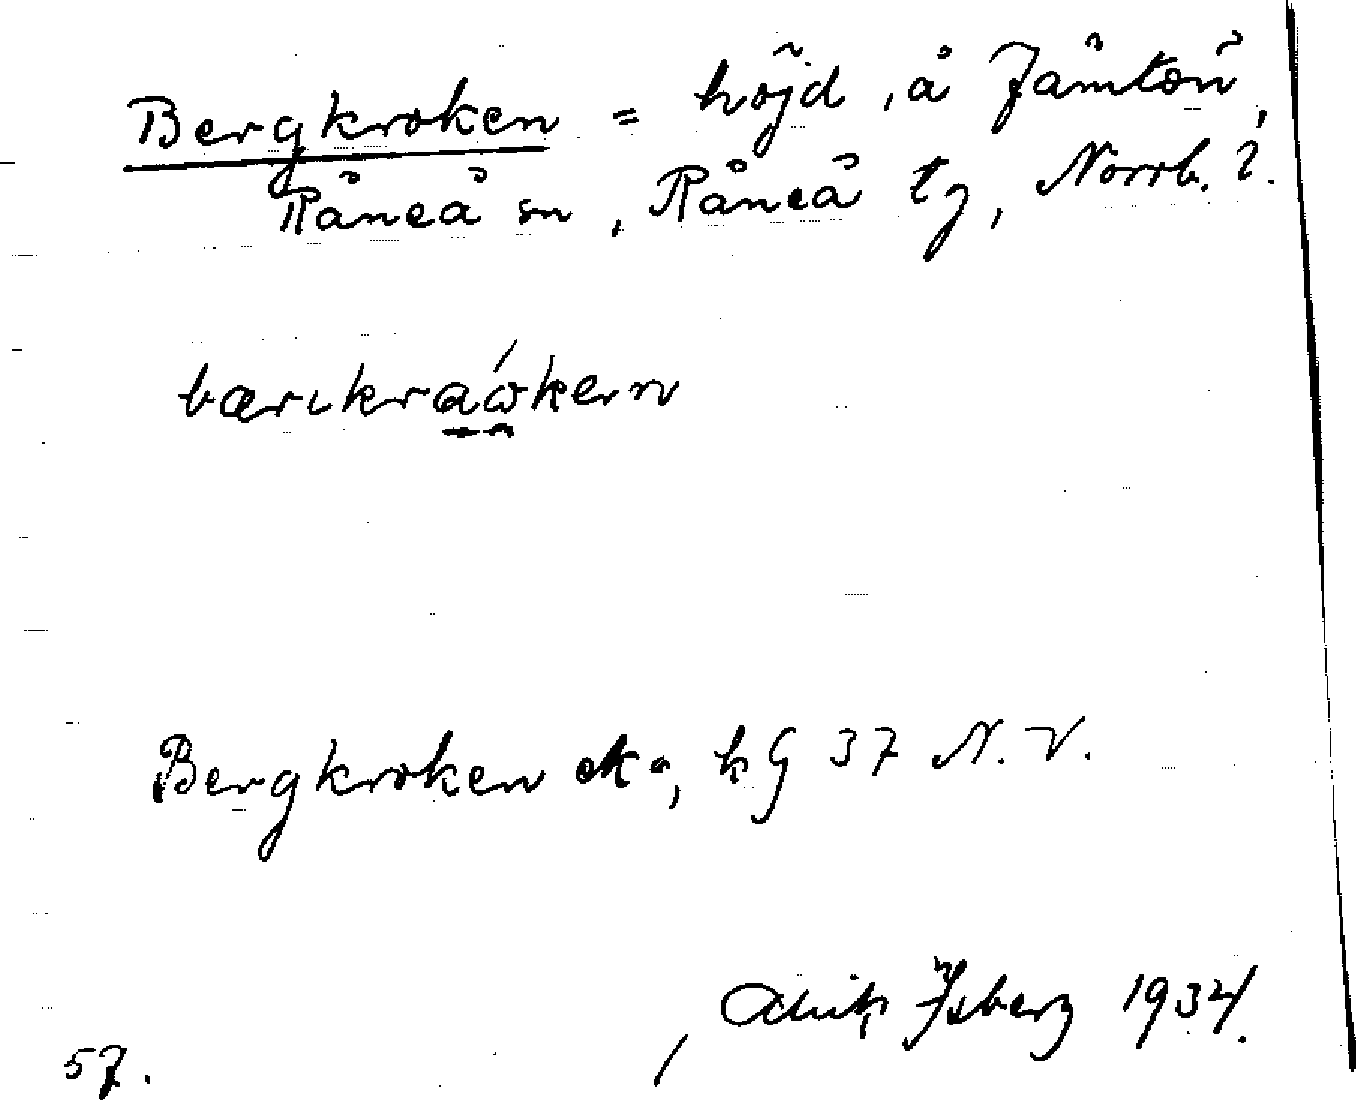 Bergkroken = höjd, å Jämtön,
Råneå sn, Råneå tg, Norrb. l.
bærıkraωkern
Bergkroken ek a, kG 37 N.V.
Isberg 1934.
57.